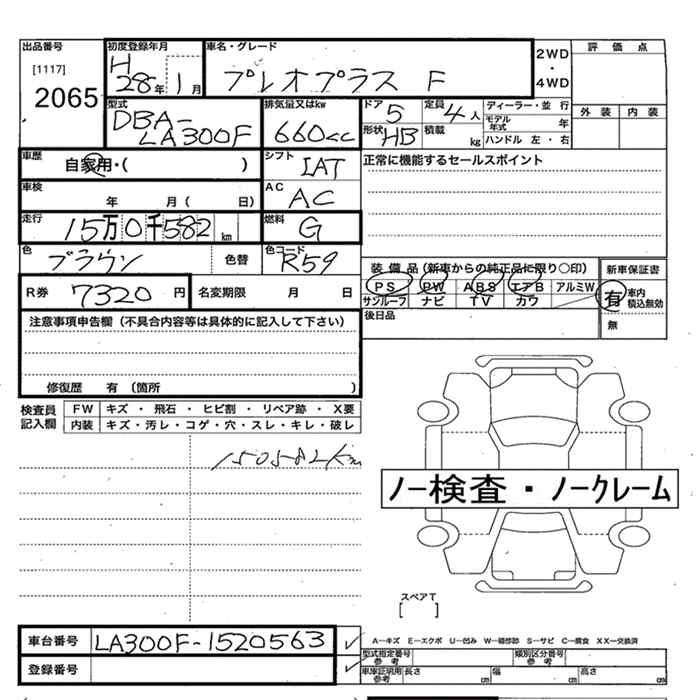 出品番号 初度登録年月 車名・グレード 2WD・4WD 評価点
[1117] H
2065 28年 1月 プレオプラス F
型式 排気量又はkw ドア 定員 ディーラー・並 行 外装 内装
DBA-LA300F 660cc 5 4人 モデル年式 年
形状 HB 積載 kg ハンドル 左・右
車歴 自家用・( ) シフト IAT 正常に機能するセールスポイント
車検 年 月( 日) AC AC
走行 15万0千582km 燃料 G
色 ブラウン 色替 色コード R59 装備品(新車からの純正品に限り○印) 新車保証書
R券 7320円 名変期限 月 日 PS PW ABS エアB アルミW 有 車内積込無効
サンルーフ ナビ TV カワ
注意事項申告欄(不具合内容等は具体的に記入して下さい) 後日品 無
修復歴 有(箇所 )
検査員記入欄 FW キズ・飛石・ヒビ割・リペア跡・X要
内装 キズ・汚レ・コゲ・穴・スレ・キレ・破レ
150582km
ノー検査・ノークレーム
スペアT
[ ]
車台番号 LA300F-1520563 A−キズ E−エクボ U−凹み W−補修跡 S−サビ C−腐食 XX−交換済
登録番号 型式指定番号 参考 類別区分番号 参考
車庫証明用参考 長さ cm 幅 cm 高さ cm